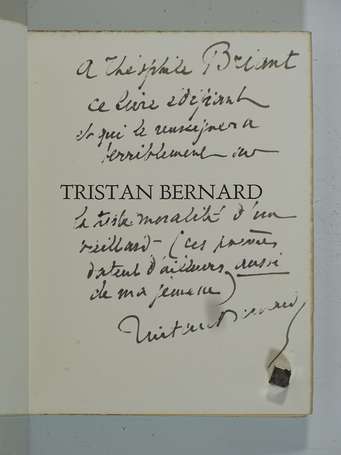 A Théophile Briant
ce livre édifiant
et qui le renseignera
terriblement sur
TRISTAN BERNARD
la triste moralité d'un
vieillard (ces poèmes
datent d'ailleurs aussi
de ma jeunesse)
Tristan Bernard